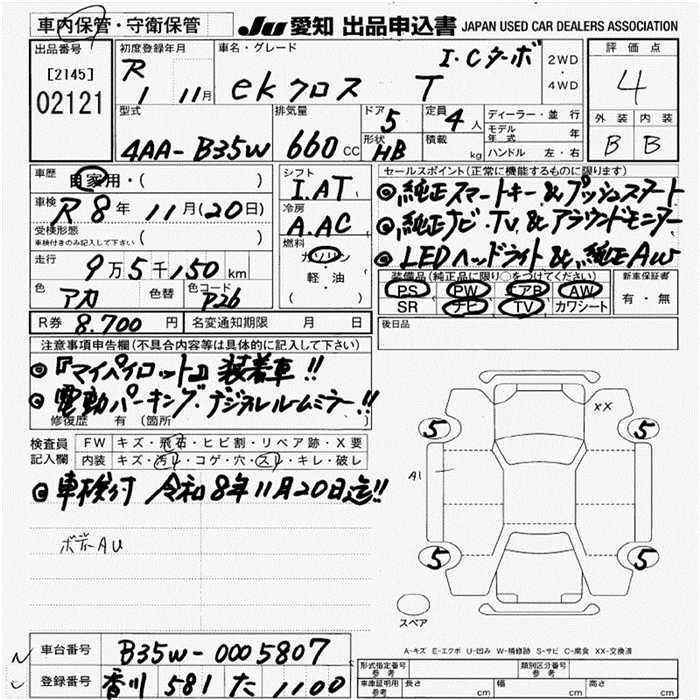 車内保管・守衛保管
JU 愛知 出品申込書 JAPAN USED CAR DEALERS ASSOCIATION
出品番号
[2145]
02121
初度登録年月
R 1 11月
車名・グレード
I・Cターボ
ekクロス T
2WD
・
4WD
評価点
4
外装 内装
B B
型式
4AA-B35W
排気量
660 CC
ドア 5
形状 HB
定員 4人
積載 kg
ディーラー・並行
モデル年式 年
ハンドル 左・右
車歴
自家用・( )
車検
R 8年 11月(20日)
受検形態
車検付きのみ記入して下さい ( )
走行
9万5千150km
色 アカ
色替
色コード P26
シフト
I.AT
冷房
A.AC
燃料
ガソリン
軽・油
( )
セールスポイント(正常に機能するものに限ります)
◎純正スマートキー&プッシュスタート
◎純正ナビ・TV&アラウンドモニター
◎LEDヘッドライト&純正AW
装備品(純正品に限り○をつけてください)
PS PW エアB AW
SR ナビ TV カワシート
新車保証書
有・無
後日品
R券 8.700円
名変通知期限 月 日
注意事項申告欄(不具合内容等は具体的に記入して下さい)
◎『マイパイロット』装着車!!
◎電動パーキング・デジタルルームミラー!!
修復歴 有(箇所 )
検査員記入欄
FW キズ・飛石・ヒビ割・リペア跡・X要
内装 キズ・汚れ・コゲ・穴・スレ・キレ・破レ
◎車検付 令和8年11月20日迄!!
ボデーAU
XX
5 5
A1
5 5
スペア
A-キズ E-エクボ U-凹み W-補修跡 S-サビ C-腐食 XX-交換済
車台番号 B35W-0005807
登録番号 香川 581 た 1100
形式指定番号
参考
類別区分番号
参考
車庫証明用
参考
長さ cm 幅 cm 高さ cm